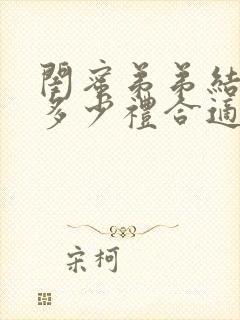 閨蜜弟弟結
多少禮合適
宋柯